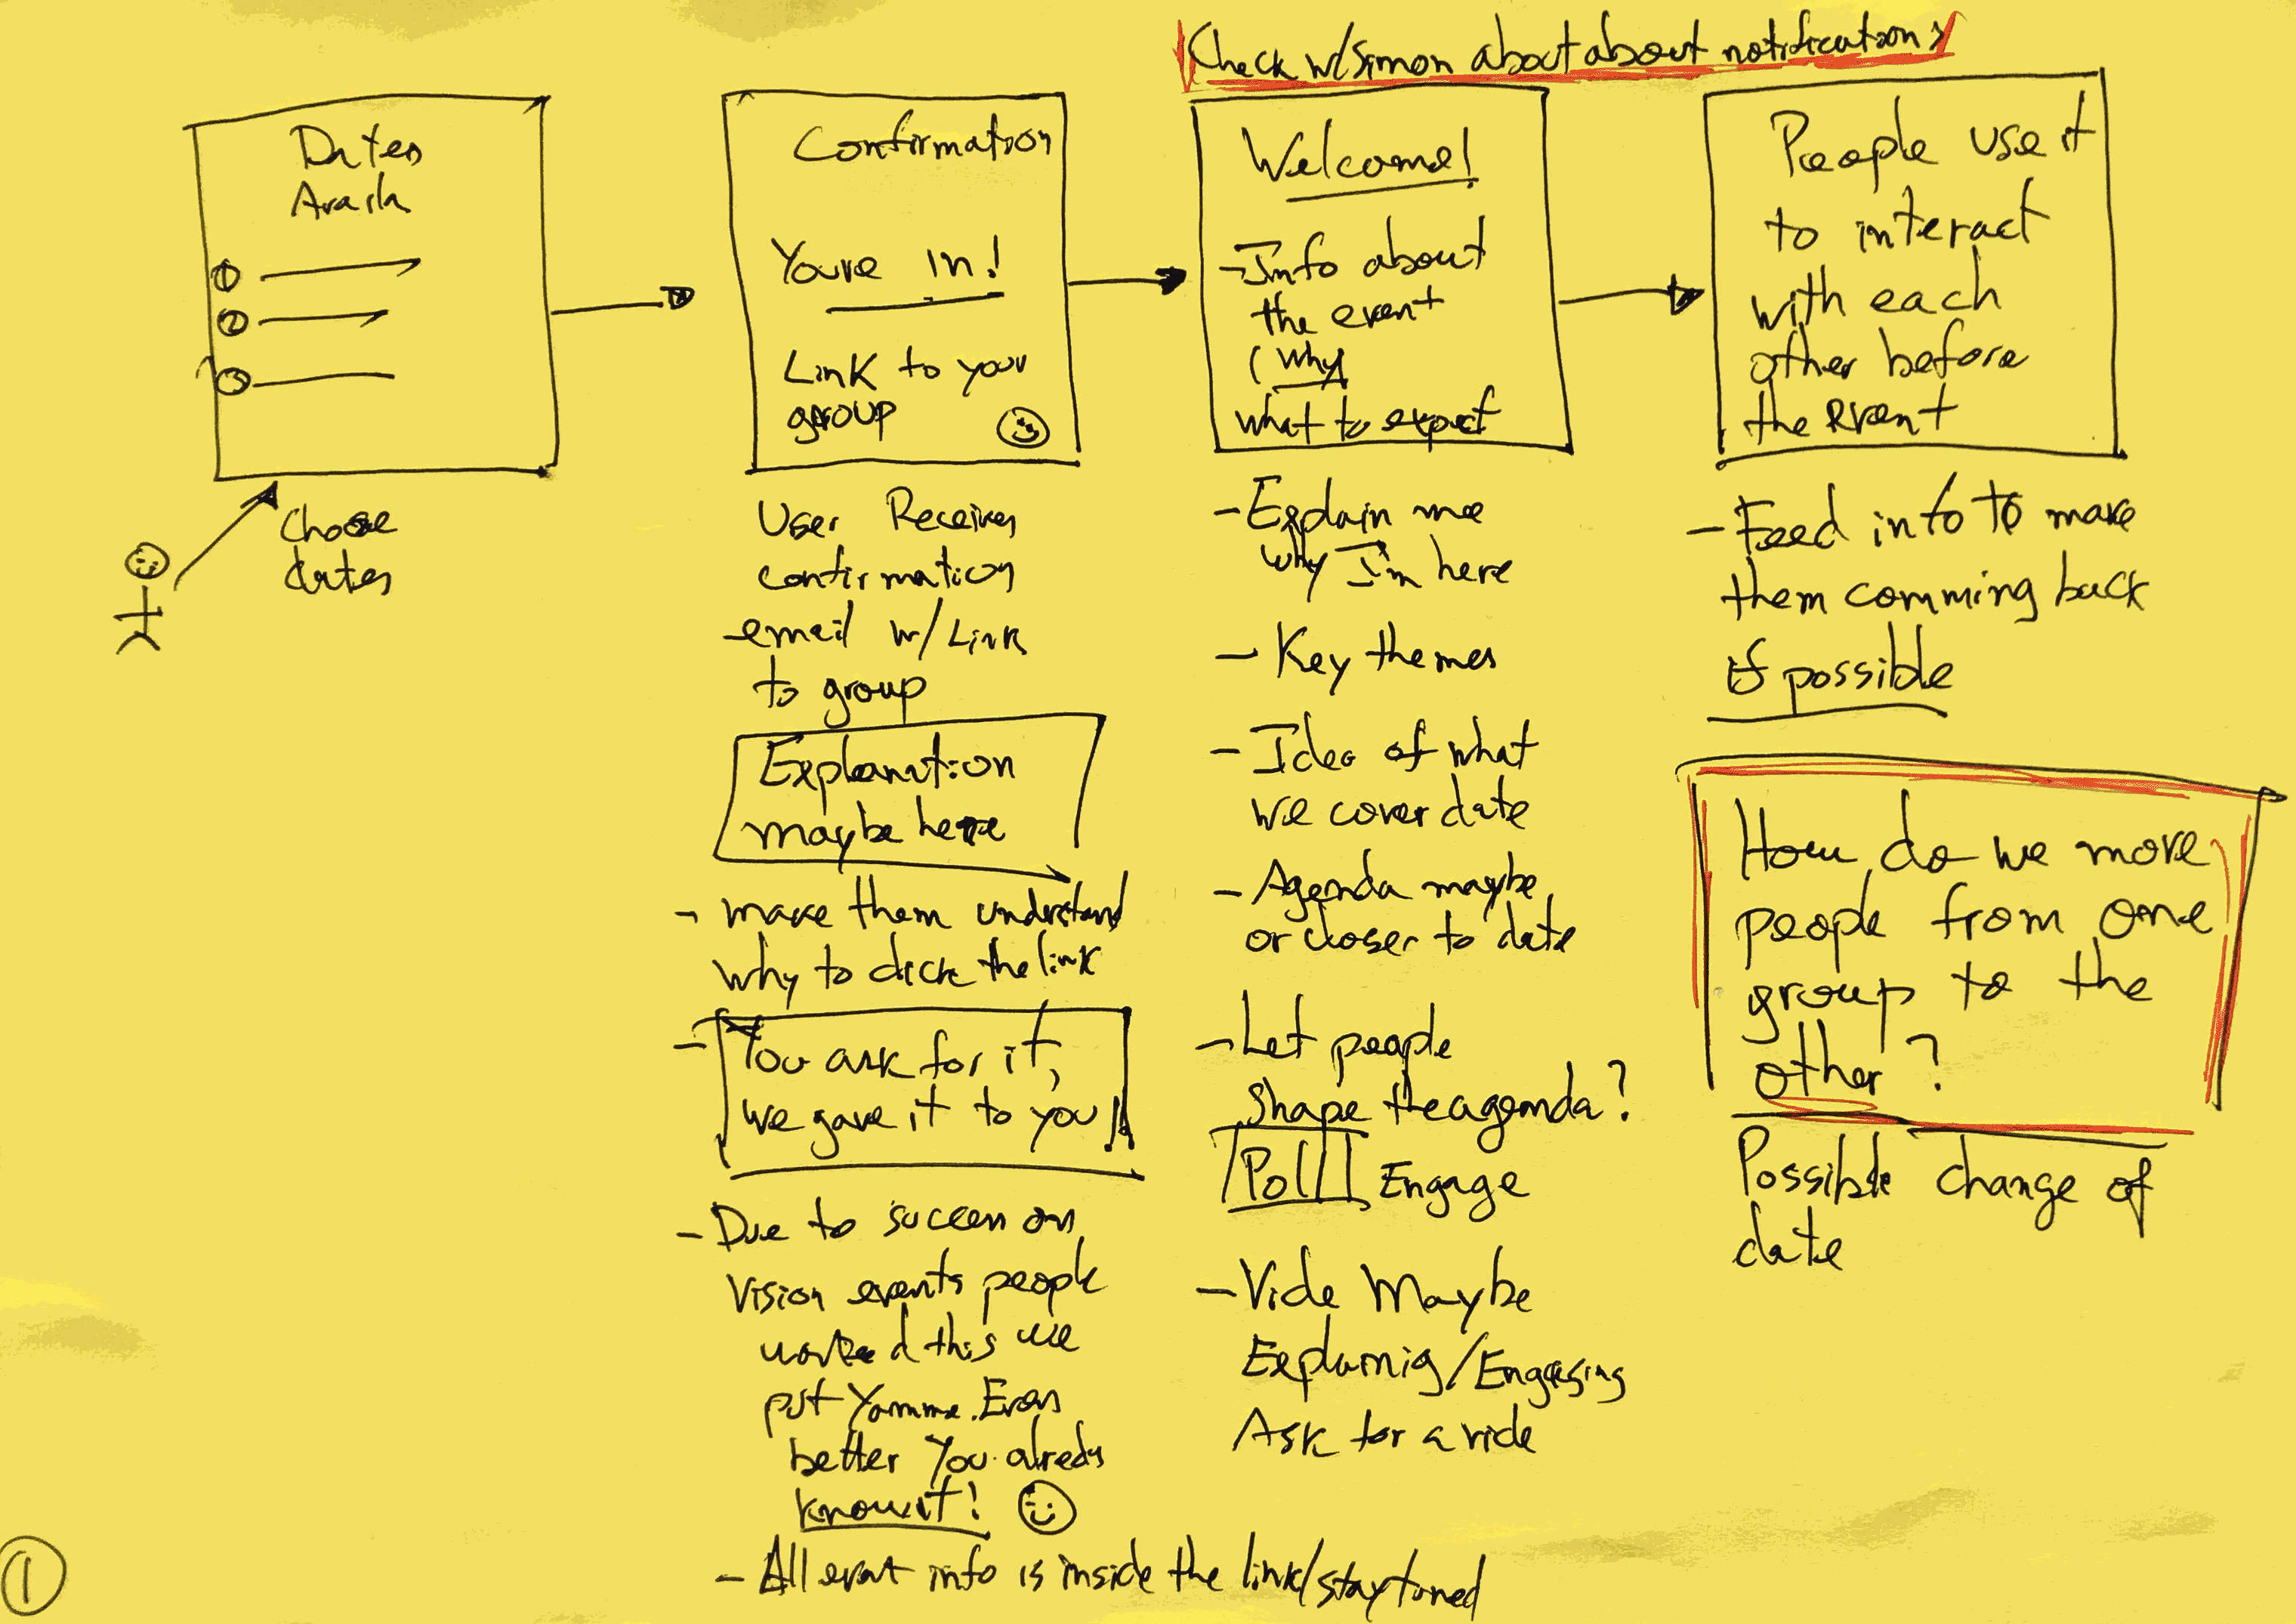 Check w/Simon about about notifications
Dates
Availa
①
②
③
Choose
dates
Confirmation
Youre in!
Link to your
group
User Receives
confirmation
email w/ Link
to group
Explanation
maybe here
- make them understand
why to click the link
- You ask for it,
we gave it to you!!
- Due to success on
Vision events people
wanted this we
put Yamme. Even
better You alredy
know it!
- All event info is inside the link/stay tuned
Welcome!
- Info about
the event
( Why
what to expect
- Explain me
why I'm here
- Key themes
- Idea of what
we cover date
- Agenda maybe
or closer to date
- Let people
shape the agenda?
Poll Engage
- Vide Maybe
Explainig/Engaging
Ask for a vide
People use it
to interact
with each
other before
the event
- Feed info to make
them comming back
if possible
How do we move
people from one
group to the
other?
Possible change of
date
①